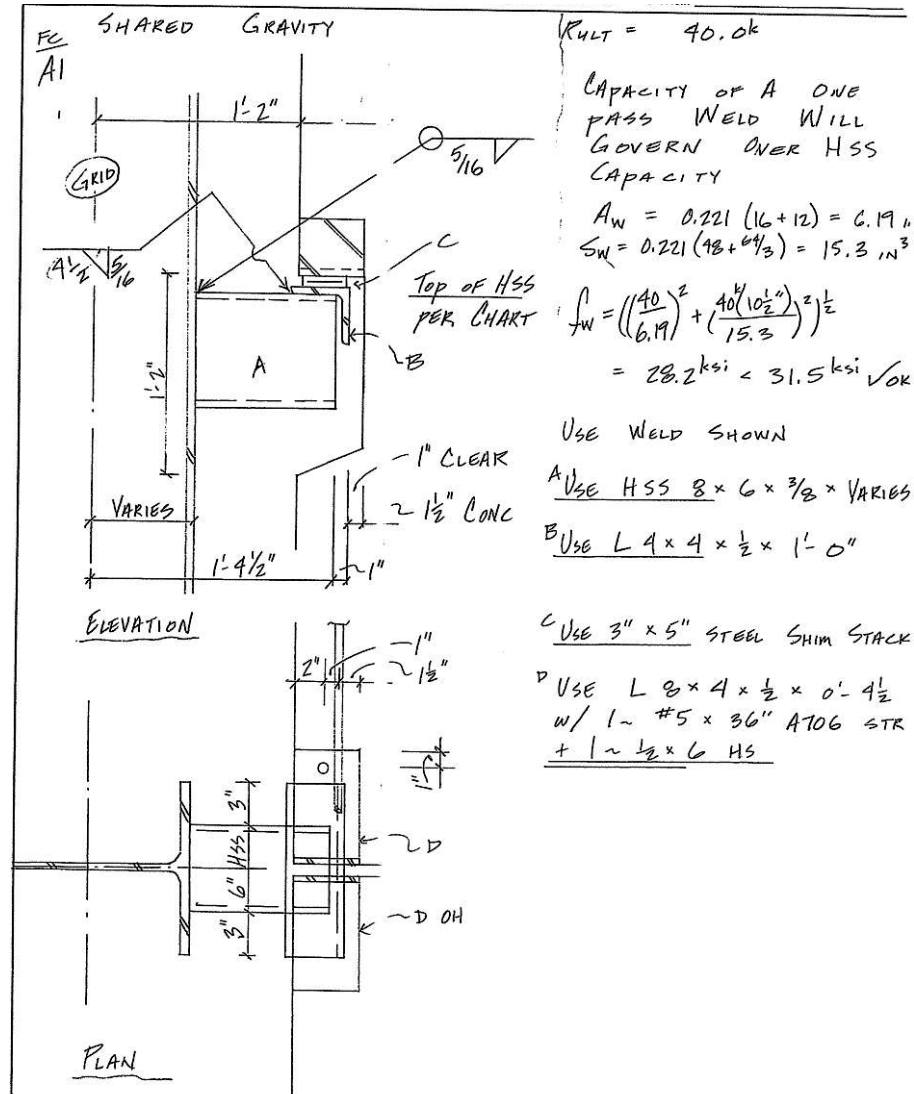 FC
A1
SHARED GRAVITY
1'-2"
GRID
5/16
4 1/2
5/16
C
TOP OF HSS
PER CHART
B
A
1'-2"
1" CLEAR
1 1/2" CONC
VARIES
1'-4 1/2"
~1"
ELEVATION
RULT = 40.0k
CAPACITY OF A ONE
PASS WELD WILL
GOVERN OVER HSS
CAPACITY
Aw = 0.221 (16+12) = 6.19
Sw = 0.221 (48+64/3) = 15.3 IN³
fw = ((40/6.19)² + (40k(10 1/2")/15.3)²)^1/2
= 28.2 ksi < 31.5 ksi √OK
USE WELD SHOWN
A USE HSS 8 × 6 × 3/8 × VARIES
B USE L 4 × 4 × 1/2 × 1'-0"
C USE 3" × 5" STEEL SHIM STACK
D USE L 8 × 4 × 1/2 × 0'-4 1/2
w/ 1~ #5 × 36" A706 STR
+ 1~ 1/2 × 6 HS
2"
1"
~1 1/2"
1"
3"
6" HSS
3"
~D
~D OH
PLAN